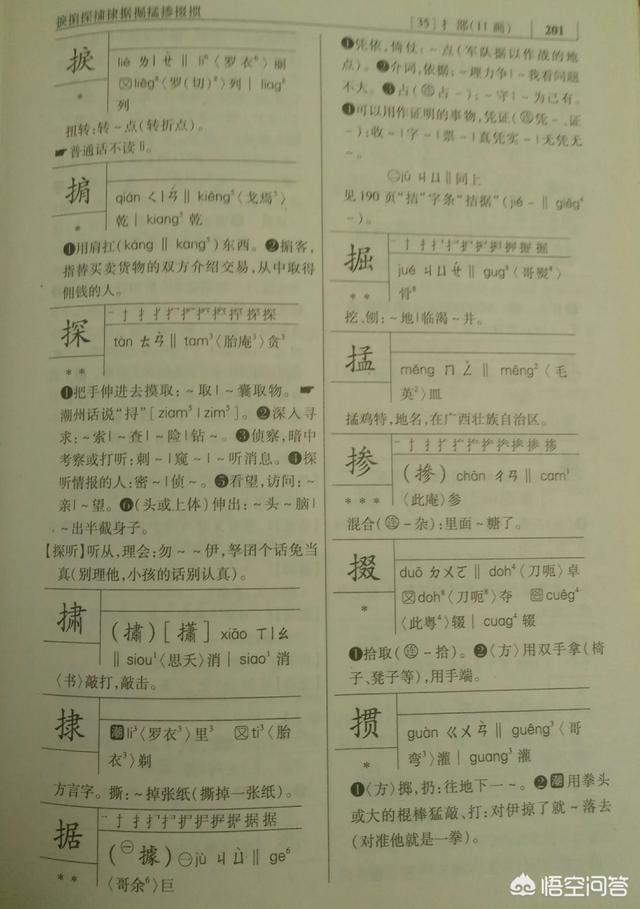 捩掮探捕捸据掘猛掺掇掼
[35]扌部(11画) 201
捩
*
liè ㄌㄧㄝˋ ‖ li⁶〈罗衣〉丽
文 liêg⁸〈罗(切)⁸〉列 | liag⁸
列
扭转:转~点(转折点)。
☛普通话不读 lì。
掮
*
qián ㄑㄧㄢˊ ‖ kiêng⁵〈戈焉⁵〉
乾 | kiang⁵ 乾
❶用肩扛(káng ‖ kang⁵)东西。❷掮客,
指替买卖货物的双方介绍交易,从中取得
佣钱的人。
探
* *
tàn ㄊㄢˋ ‖ tam³〈胎庵³〉贪³
❶把手伸进去摸取:~取 | ~囊取物。☛
潮州话说“挦”[ziam⁵ | zim⁵]。❷深入寻
求:~索 | ~查 | ~险 | 钻~。❸侦察,暗中
考察或打听:刺~ | 窥~ | ~听消息。❹探
听情报的人:密~ | 侦~。❺看望,访问:~
亲 | ~望。❻(头或上体)伸出:~头~脑 |
~出半截身子。
【探听】听从,理会:勿~~伊,孥囝个话免当
真(别理他,小孩的话别认真)。
(攇)
xiāo ㄒㄧㄠ
‖ siou¹〈思夭〉消 | siao¹ 消
〈书〉敲打,敲击。
捸
*
潮 li³〈罗衣³〉里³ 文 ti³〈胎
衣³〉剃
方言字。撕:~掉张纸(撕掉一张纸)。
据
* *
(㊀據) ㊀jù ㄐㄩˋ ‖ ge⁶
〈哥余⁶〉巨
❶凭依,倚仗:~点(军队据以作战的地
点)。❷介词,依据:~理力争 | ~我看问题
不大。❸占(连占-):~守 | ~为己有。
❹可以用作证明的事物,凭证(连凭-、证
-):收~ | 字~ | 票~ | 真凭实~ | 无凭无
~。
㊁jū ㄐㄩ ‖ 同上
见190页“拮”字条“拮据”(jié- ‖ giêg⁴
-)。
掘
* *
jué ㄐㄩㄝˊ ‖ gug⁸〈哥熨⁸〉
骨⁸
挖、刨:~地 | 临渴~井。
猛
měng ㄇㄥˇ ‖ mêng²〈毛
英²〉皿
猛鸡特,地名,在广西壮族自治区。
掺
* * *
(摻) chān ㄔㄢ ‖ cam¹
〈此庵〉参
混合(连-杂):里面~糖了。
掇
*
duō ㄉㄨㄛ ‖ doh⁴〈刀呃〉卓
文 doh⁸〈刀呃⁸〉夺 cuêg⁴
〈此粤⁴〉辍 | cuag⁴ 辍
❶拾取(连-拾)。❷〈方〉用双手拿(椅
子、凳子等),用手端。
掼
*
guàn ㄍㄨㄢˋ ‖ guêng³〈哥
弯³〉灌 | guang³ 灌
❶〈方〉掷,扔:往地下一~。❷潮用拳头
或大的棍棒猛敲、打:对伊掠了就~落去
(对准他就是一拳)。
悟空问答